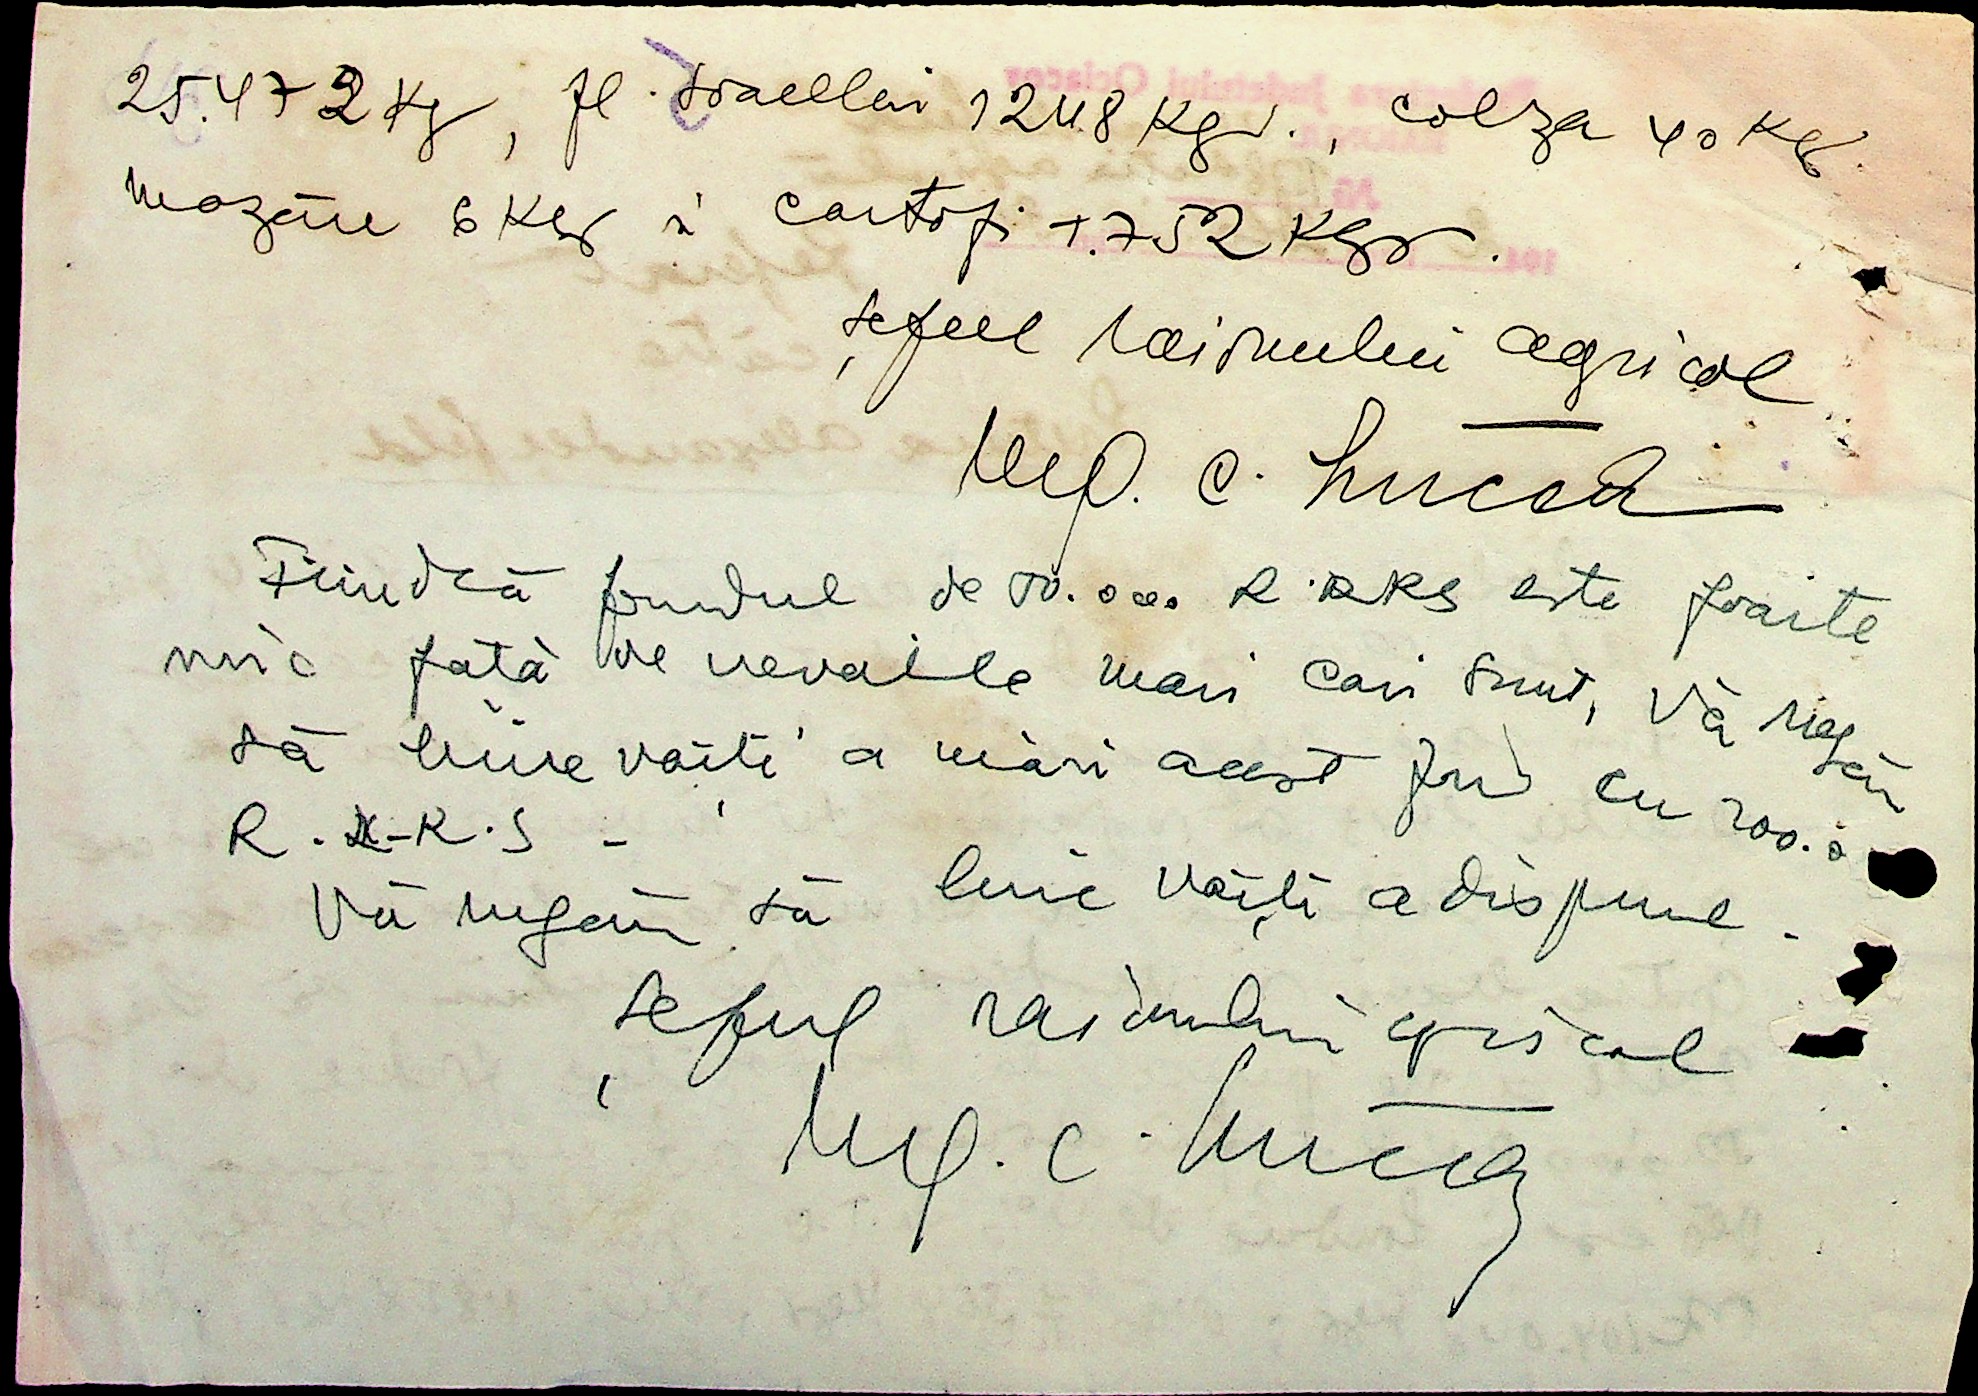 25.472 Kg, fl. soarelui 1248 Kgr., colza 40 Kg.
mazăre 6 Kgr și cartofi 1.752 Kgr.
Șeful raionului agricol
Ing. C.
Fiindcă fondul de 50.000 R.K.K.S este foarte
mic față de nevoile mari cari sunt, vă rugăm
să binevoiți a mări acest fond cu 200.0
R.K.K.S -
Vă rugăm să bine voiți a dispune.
Șeful raionului agricol
Ing. C.